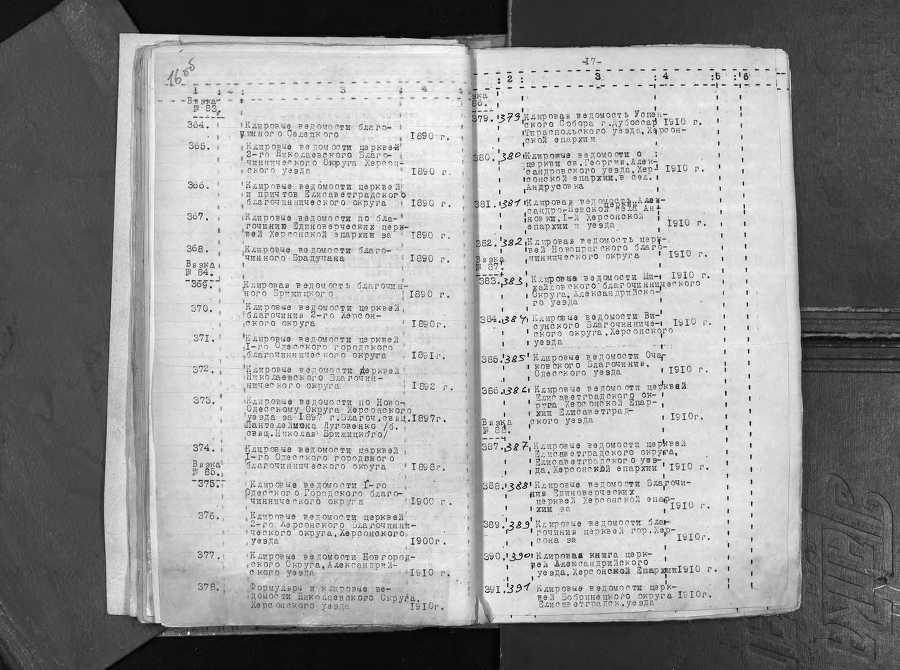 1605
1 3 4
Вязка
№ 83.
364. Клировые ведомости благо-
чинного Селецкого 1890 г.
365. Клировые ведомости церквей
2-го Николаевского Благо-
чиннического Округа Херсон-
ского уезда 1890 г.
366. Клировые ведомости церквей
и причтов Елисаветградского
благочиннического округа 1890 г.
367. Клировые ведомости по бла-
гочинию Единоверческих церк-
вей Херсонской епархии за 1890 г.
368. Клировые ведомости благо-
чинного Брадучана 1890 г.
Вязка
№ 84.
369. Клировая ведомость благочин-
ного Брижицкого 1890 г.
370. Клировые ведомости церквей
благочиния 2-го Херсон-
ского округа 1890г.
371. Клировые ведомости церквей
I-го Одесского городского
благочиннического округа 1891г.
372. Клировые ведомости церквей
Николаевского Благочин-
нического округа 1892 г.
373. Клировые ведомости по Ново-
Одесскому Округа Херсонского
уезда за 1897 г.Благоч.свящ. 1897г.
Пантелеймона Луговенко /б.
свящ.Николая Брижицкого/
374. Клировые ведомости церквей
I-го Одесского городского
благочиннического округа 1898г.
Вязка
№ 85.
375. Клировые ведомости I-го
Одесского Городского благо-
чиннического округа 1900 г.
376. Клировые ведомости церквей
2-го Херсонского Благочинни-
ческого округа,Херсонского
уезда 1900г.
377. Клировые ведомости Новгород-
ского Округа,Александрий-
ского уезда 1910 г.
378. Формуляры и клировые ве-
домости Николаевского Округа,
Херсонского уезда 1910г.
-17-
2 3 4 5 6
379. 379 Клировая ведомость Успен-
ского Собора г.Дубоссар 1910 г.
Тираспольского уезда,Херсон-
ской епархии
380. 380 Клировые ведомости о
церкви св.Георгия,Алек-
сандровского уезда,Хер- 1910 г.
сонской епархии,в сел.
Андрусовка
381. 381 Клировая ведомость Алек-
сандро-Невской церкви Ан-
новки,I-й Херсонской 1910 г.
епархии и уезда
382. 382 Клировая ведомость церк-
вей Новопрагского благо-
чиннического округа 1910 г.
Вязка
№ 87.
383. 383 Клировые ведомости Ми- 1910 г.
хайловского благочиннического
Округа,Александрийско-
го уезда
384. 384 Клировые ведомости Ви-
сунского Благочинниче- 1910 г.
ского округа,Херсонского
уезда
385. 385 Клировые ведомости Оча-
ковского Благочиния,
Одесского уезда 1910 г.
386. 386 Клировые ведомости церквей
Елисаветградского ок-
руга Херсонской Епар-
хии Елисаветград- 1910г.
ского уезда
Вязка
№ 88.
387. 387 Клировые ведомости церквей
Елисаветградского округа,
Елисаветградского уез-
да,Херсонской епархии 1910 г.
388. 388 Клировые ведомости Благочи-
ния Единоверческих
церквей Херсонской епар-
хии за 1910 г.
389. 389 Клировые ведомости бла-
гочиния церквей гор.Хер-
сона за 1910г.
390. 390 Клировая книга церк-
вей Александрийского
уезда,Херсонской Епархии 1910 г.
391. 391 Клировые ведомости церк-
вей Бобринецкого округа 1910г.
Елисаветградск.уезда